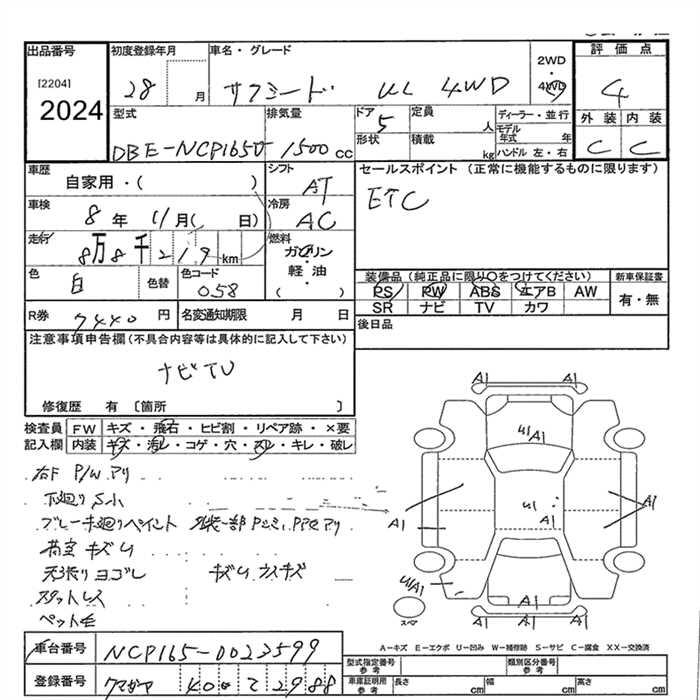 出品番号
[2204]
2024
初度登録年月
28 月
車名・グレード
サクシード UL 4WD
2WD
・
4WD
評価点
4
外装 内装
C C
型式
DBE-NCP165V
排気量
1500 cc
ドア
5
定員
人
形状
積載
kg
ディーラー・並行
モデル年式 年
ハンドル 左・右
車歴
自家用・( )
シフト
AT
車検
8 年 11 月( 日)
冷房
AC
走行
8万8千219 km
燃料
ガソリン
軽油
・
( )
色
白
色替
色コード
058
R券
7440 円
名変通知期限 月 日
セールスポイント (正常に機能するものに限ります)
ETC
装備品 (純正品に限り○をつけてください)
PS PW ABS エアB AW
SR ナビ TV カワ
新車保証書
有・無
後日品
注意事項申告欄(不具合内容等は具体的に記入して下さい)
ナビTV
修復歴 有 〔箇所 〕
検査員記入欄
FW キズ・飛石・ヒビ割・リペア跡・×要
内装 キズ・汚レ・コゲ・穴・スレ・キレ・破レ
右F P/W アリ
下廻り S小
ブレーキ廻りペイント
荷室 キズ U
天張り ヨゴレ
スタットレス
ペット毛
A1 A1
U1 A1
U1
A1
A1
A1
U1/A1
A1
A1 A1
スペア
A-キズ E-エクボ U-凹み W-補修跡 S-サビ C-腐食 XX-交換済
車台番号
NCP165-0023599
登録番号
型式指定番号
参考
類別区分番号
参考
車庫証明用
参考
長さ cm
幅 cm
高さ cm